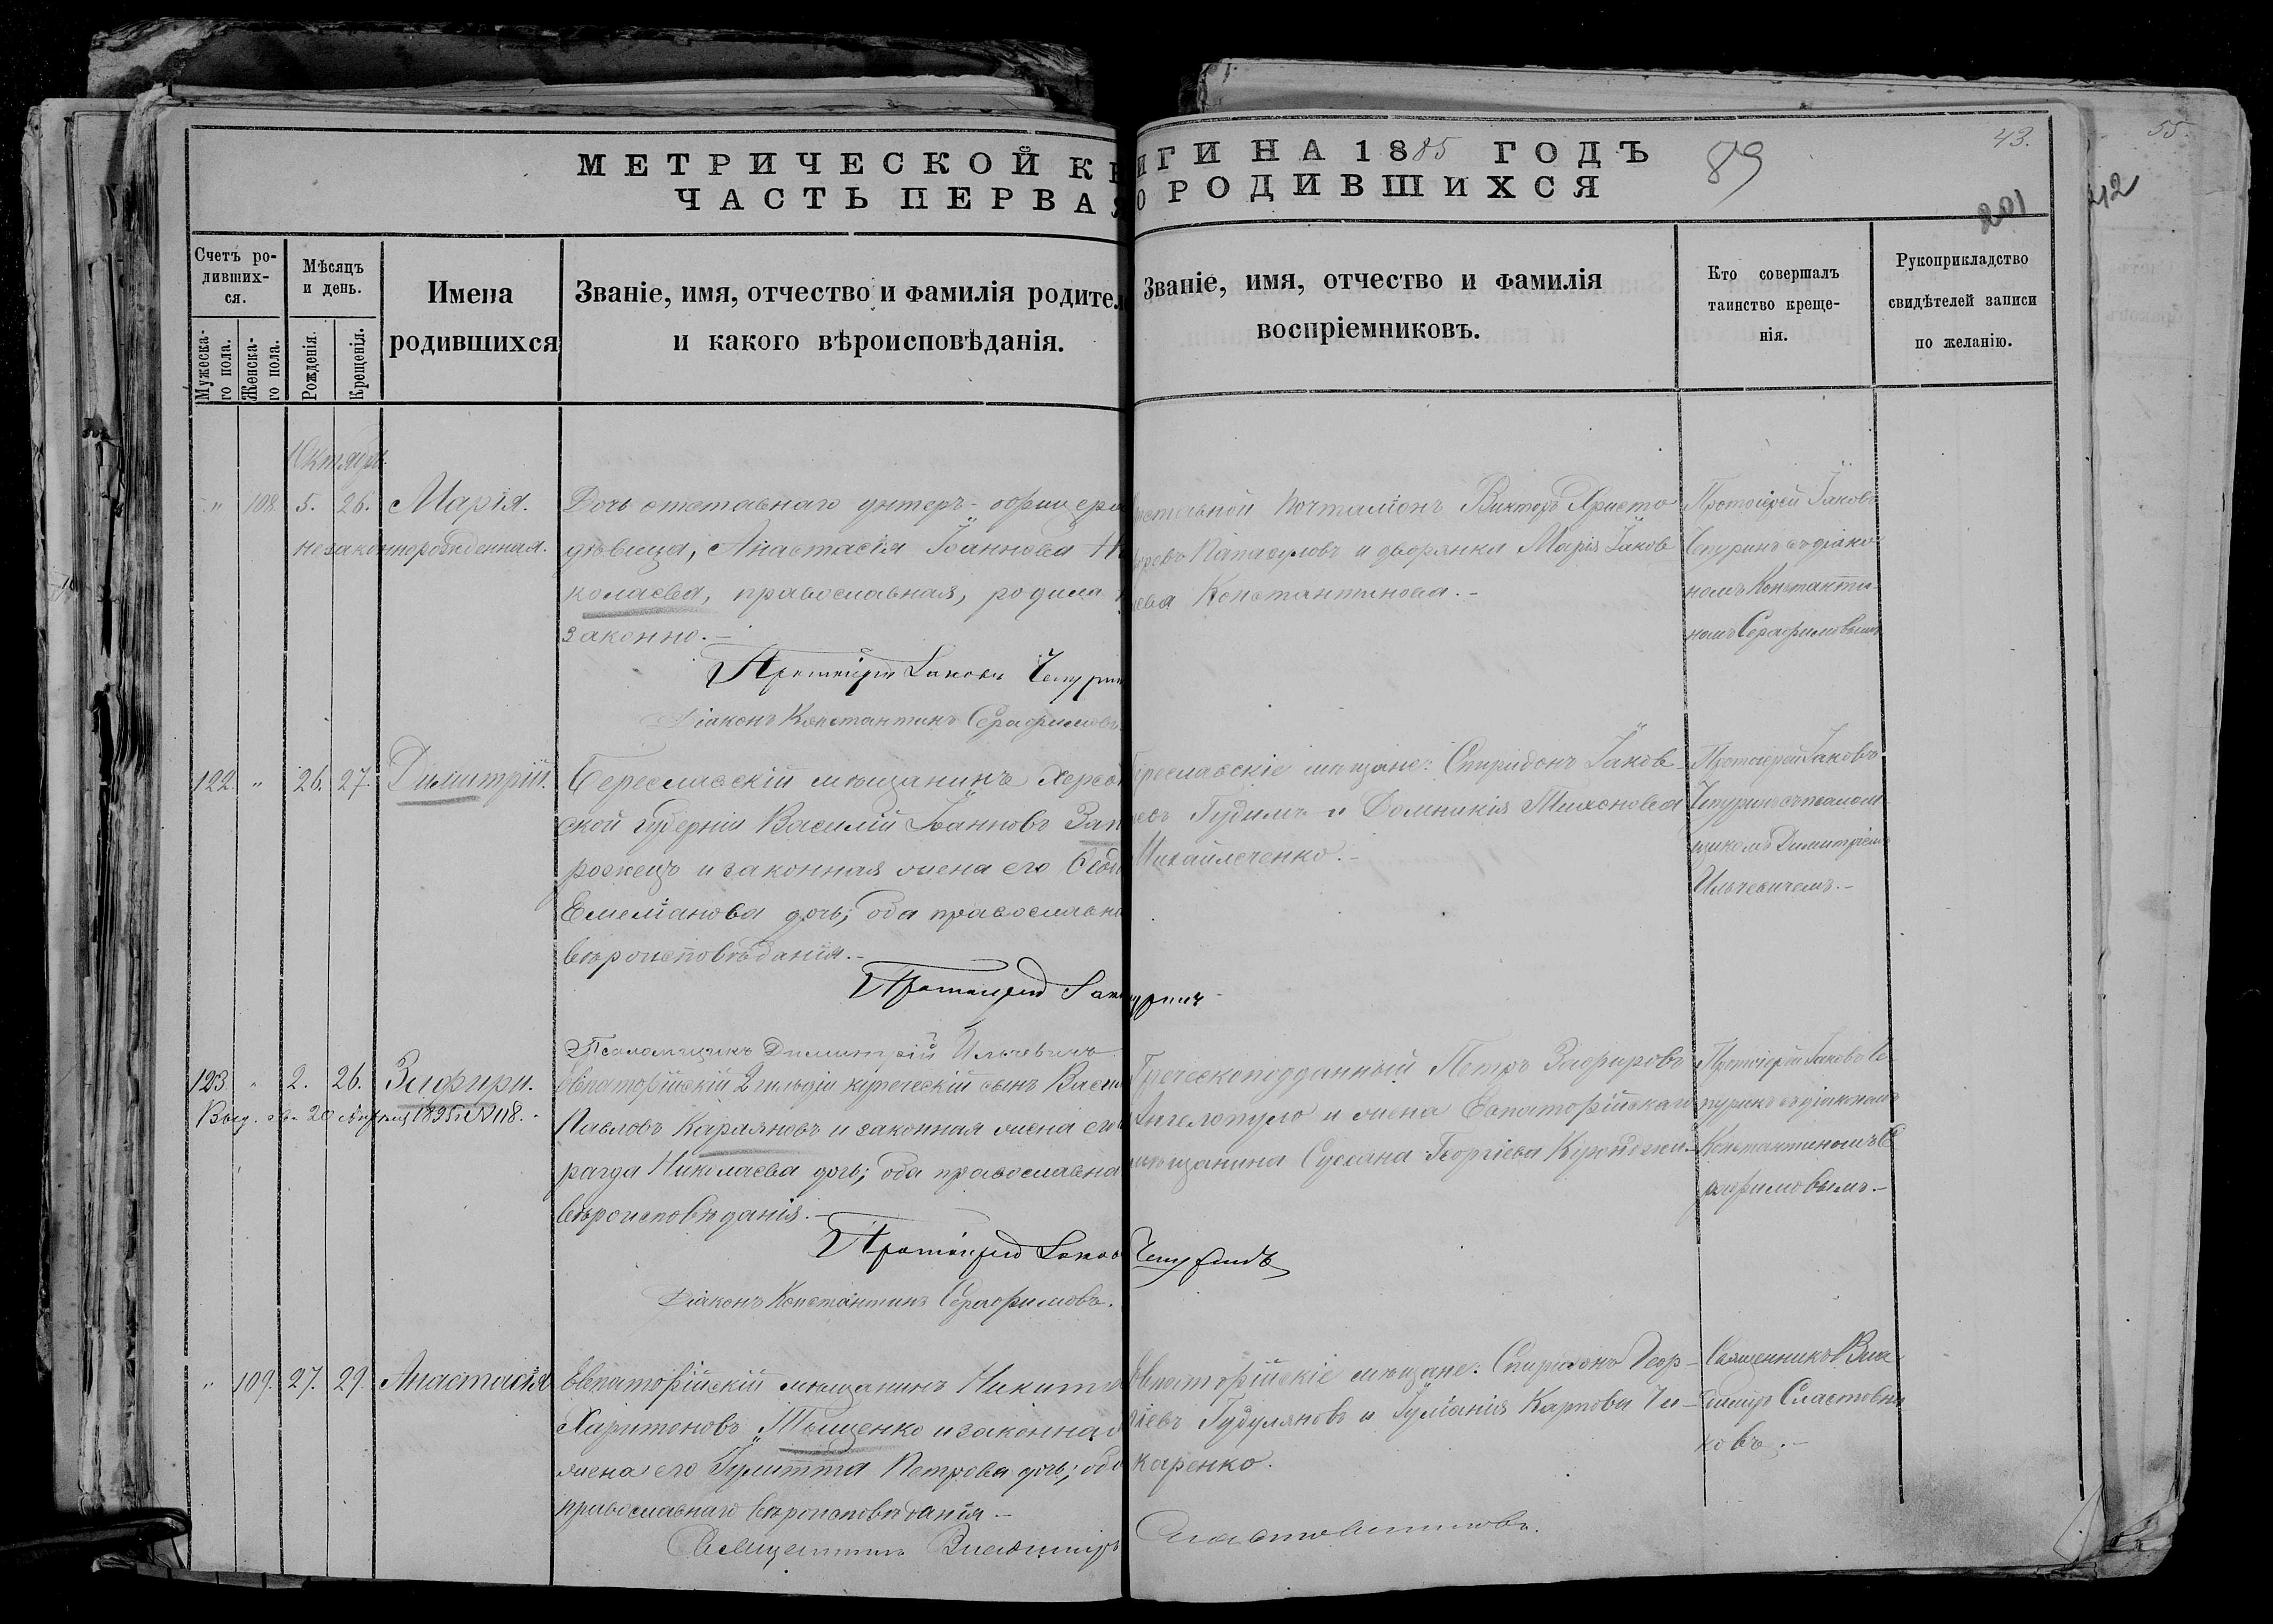 МЕТРИЧЕСКОЙ КН
ИГИ НА 1885 ГОДЪ
ЧАСТЬ ПЕРВАЯ
О РОДИВШИХСЯ
89
43.
201
55.
212
Счетъ ро-
дивших-
ся.
Мужеска-
го пола.
Женска-
го пола.
Мѣсяцъ
и день.
Рожденія.
Крещенія.
Имена
родившихся
Званіе, имя, отчество и фамилія родител
и какого вѣроисповѣданія.
Званіе, имя, отчество и фамилія
воспріемниковъ.
Кто совершалъ
таинство креще-
нія.
Рукоприкладство
свидѣтелей записи
по желанію.
Октябрь.
" 108. 5. 26. Марія.
незаконнорожденная.
Дочь отставнаго унтеръ-офицера
дѣвица, Анастасія Іоаннова Ни
колаева, православная, родила н
законно.-
Протоіерей Іаковъ Чепурин
Діаконъ Константинъ Серафимовъ.
тставной почталіонъ Викторъ Христо
форовъ Папасуловъ и дворянка Марія Іаков
лева Константинова.-
Протоіерей Іаковъ
Чепуринъ съ діако-
номъ Константи-
номъ Серафимовымъ
122. " 26. 27. Димитрій.
Береславскій мѣщанинъ Херсон
ской губерніи Василій Іоанновъ Зап
рожецъ и законная жена его
Емеліанова дочь; оба православна
вѣроисповѣданія.-
Протоіерей Іак
чуринъ
Псаломщикъ Димитрій Ильчевичъ
Береславскіе мѣщане: Спиридонъ Іаков-
левъ Гудимъ и Домникія Тихонова
Михайлеченко.-
Протоіерей Іаковъ
Чепуринъ съ псалом-
щикомъ Димитріемъ
Ильчевичемъ.-
123. " 2. 26. Зафири.
Выд. св. 20 Апрѣля 1895 г. № 118.-
Евпаторійскій 2 гильдіи купеческій сынъ Васи
Павловъ Караяновъ и законная жена его
рагда Николаева дочь; оба православна
вѣроисповѣданія.-
Протоіерей Іаков
Чепуринъ
Діаконъ Константинъ Серафимовъ.
Греческоподданный Петръ Зафировъ
Ангелопуло и жена Евпаторійскаго
мѣщанина Сусанна Георгіева
Протоіерей Іаковъ Че
пуринъ съ діакономъ
Константиномъ Се
рафимовымъ.-
" 109. 27. 29. Анастасія
Евпаторійскій мѣщанинъ Никита
Харитоновъ Тищенко и законная
жена его Іулитта Петрова дочь; оба
православнаго вѣроисповѣданія.-
Священникъ Владиміръ
Сластовниковъ.
Евпаторійскіе мѣщане: Спиридонъ Геор-
гіевъ Гудуляновъ и Іуліанія Карпова Чи-
каренко.
Священникъ Вла-
диміръ Сластовни
ковъ.-